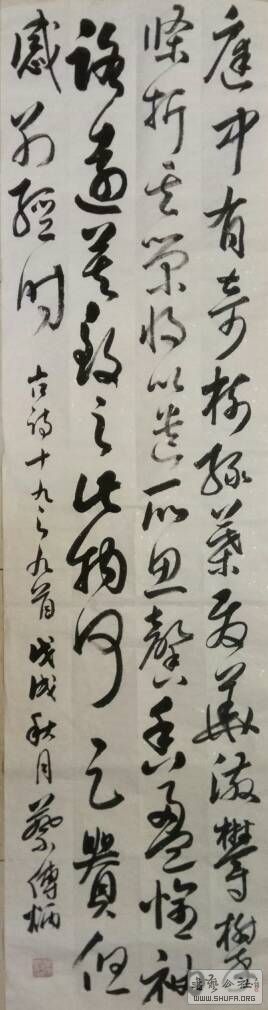 庭中有奇樹綠葉發華滋攀樹
條折其榮將以遺所思馨香盈懷袖
路遠莫致之此物何足貴但
感別經時
古诗十九之九首 戊戌秋月 蔡傳炳
書藝公社
WWW.SHUFA.ORG